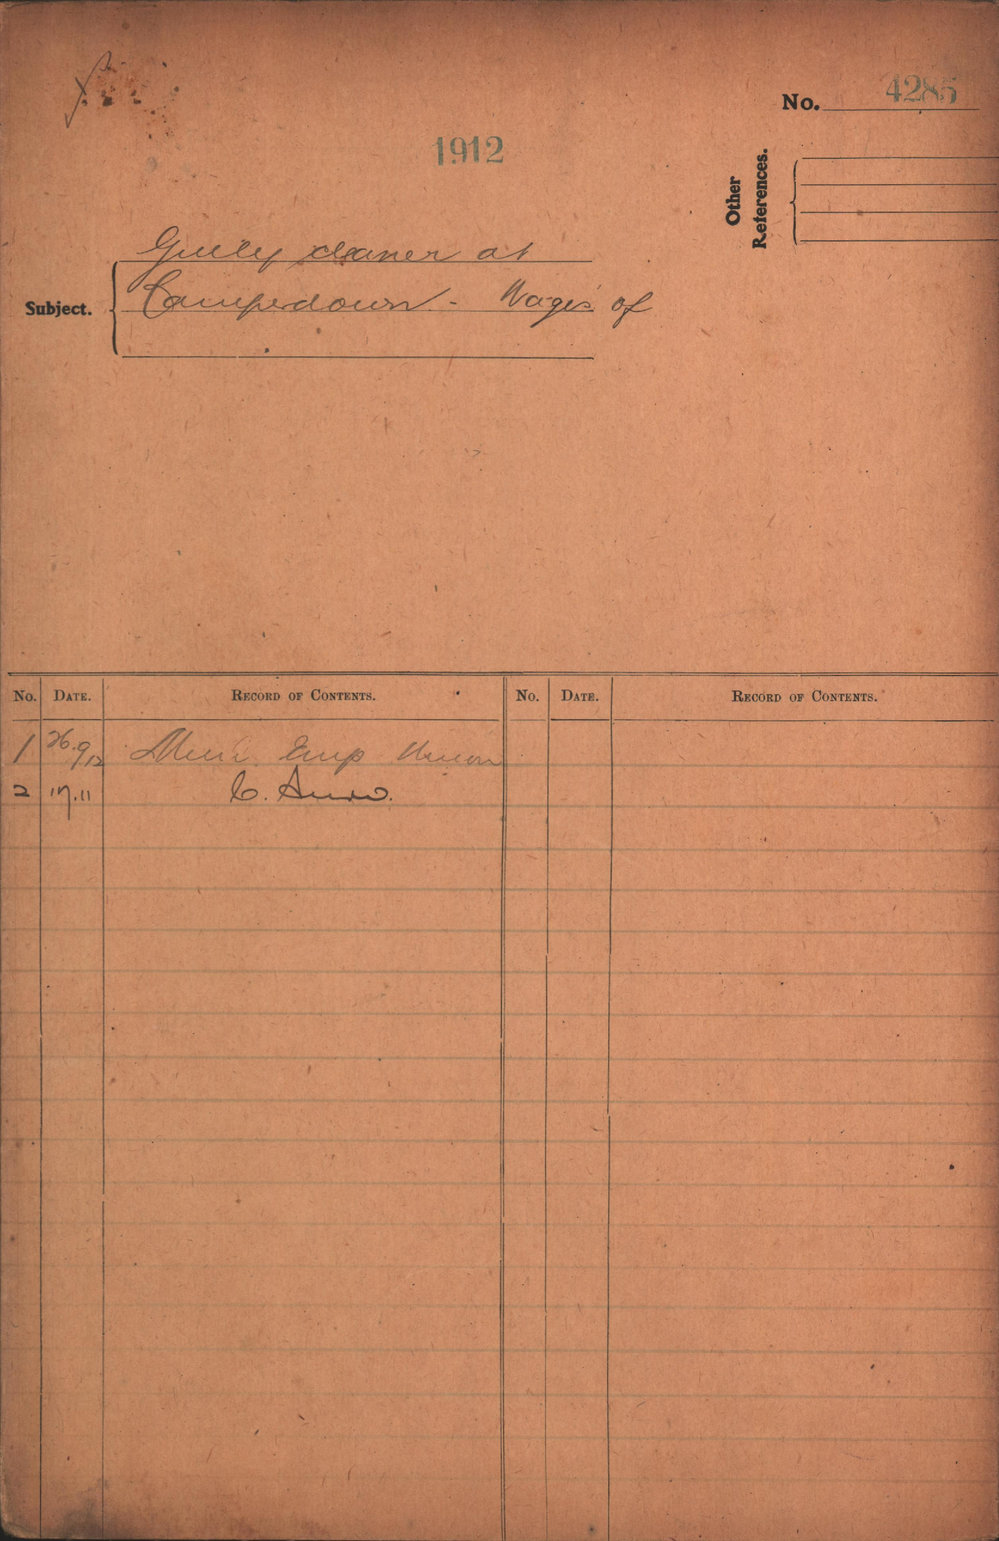 No. 4285
1912
Other
References.
Subject.
Gully cleaner at
Camperdown - Wages of
No. DATE. RECORD OF CONTENTS. No. DATE. RECORD OF CONTENTS.
1 26.9/12 Mun. Emp Union
2 11.11